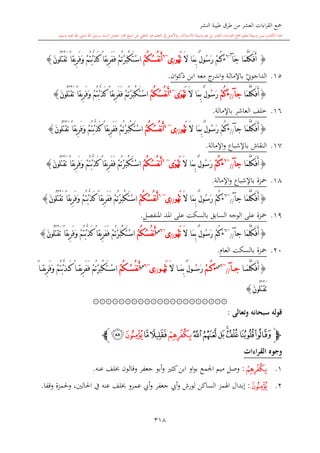 جمع القراءات العشر من طرق طيبة النشر
﴿ أَفَكُلَّمَا جَآءَكُمْ رَسُولٌۢ بِمَا لَا تَهْوَىٰٓ أَنفُسُكُمُ ٱسْتَكْبَرْتُمْ فَفَرِيقًا كَذَّبْتُمْ وَفَرِيقًا تَقْتُلُونَ ﴾
١٥. الداجوني بالإمالة واندرج معه ابن ذكوان.
﴿ أَفَكُلَّمَا جَآءَكُمْ رَسُولٌۢ بِمَا لَا تَهْوَىٰٓ أَنفُسُكُمُ ٱسْتَكْبَرْتُمْ فَفَرِيقًا كَذَّبْتُمْ وَفَرِيقًا تَقْتُلُونَ ﴾
١٦. خلف العاشر بالإمالة.
﴿ أَفَكُلَّمَا جَآءَكُمْ رَسُولٌۢ بِمَا لَا تَهْوَىٰٓ أَنفُسُكُمُ ٱسْتَكْبَرْتُمْ فَفَرِيقًا كَذَّبْتُمْ وَفَرِيقًا تَقْتُلُونَ ﴾
١٧. النقاش بالإشباع والإمالة.
﴿ أَفَكُلَّمَا جَآءَكُمْ رَسُولٌۢ بِمَا لَا تَهْوَىٰٓ أَنفُسُكُمُ ٱسْتَكْبَرْتُمْ فَفَرِيقًا كَذَّبْتُمْ وَفَرِيقًا تَقْتُلُونَ ﴾
١٨. حمزة بالإشباع والإمالة.
﴿ أَفَكُلَّمَا جَآءَكُمْ رَسُولٌۢ بِمَا لَا تَهْوَىٰٓ أَنفُسُكُمُ ٱسْتَكْبَرْتُمْ فَفَرِيقًا كَذَّبْتُمْ وَفَرِيقًا تَقْتُلُونَ ﴾
١٩. حمزة على الوجه السابق بالسكت على المد المنفصل.
﴿ أَفَكُلَّمَا جَآءَكُمْ رَسُولٌۢ بِمَا لَا تَهْوَىٰٓ أَنفُسُكُمُ ٱسْتَكْبَرْتُمْ فَفَرِيقًا كَذَّبْتُمْ وَفَرِيقًا تَقْتُلُونَ ﴾
٢٠. حمزة بالسكت العام.
﴿ أَفَكُلَّمَا جَآءَكُمْ رَسُولٌۢ بِمَا لَا تَهْوَىٰٓ أَنفُسُكُمُ ٱسْتَكْبَرْتُمْ فَفَرِيقًا كَذَّبْتُمْ وَفَرِيقًا
تَقْتُلُونَ ﴾
قوله سبحانه وتعالى :
﴿ وَقَالُوا۟ قُلُوبُنَا غُلْفٌۢ بَل لَّعَنَهُمُ ٱللَّهُ بِكُفْرِهِمْ فَقَلِيلًا مَّا يُؤْمِنُونَ ٨٨ ﴾
وجوه القراءات
١. بِكُفْرِهِمْ : وصل ميم الجمع بواو ابن كثير وأبو جعفر وقالون بخلف عنه.
٢. يُؤْمِنُونَ : إبدال الهمز الساكن لورش وأبي جعفر وأبي عمرو بخلف عنه في الحالين، ولحمزة وقفا.
٣١٨